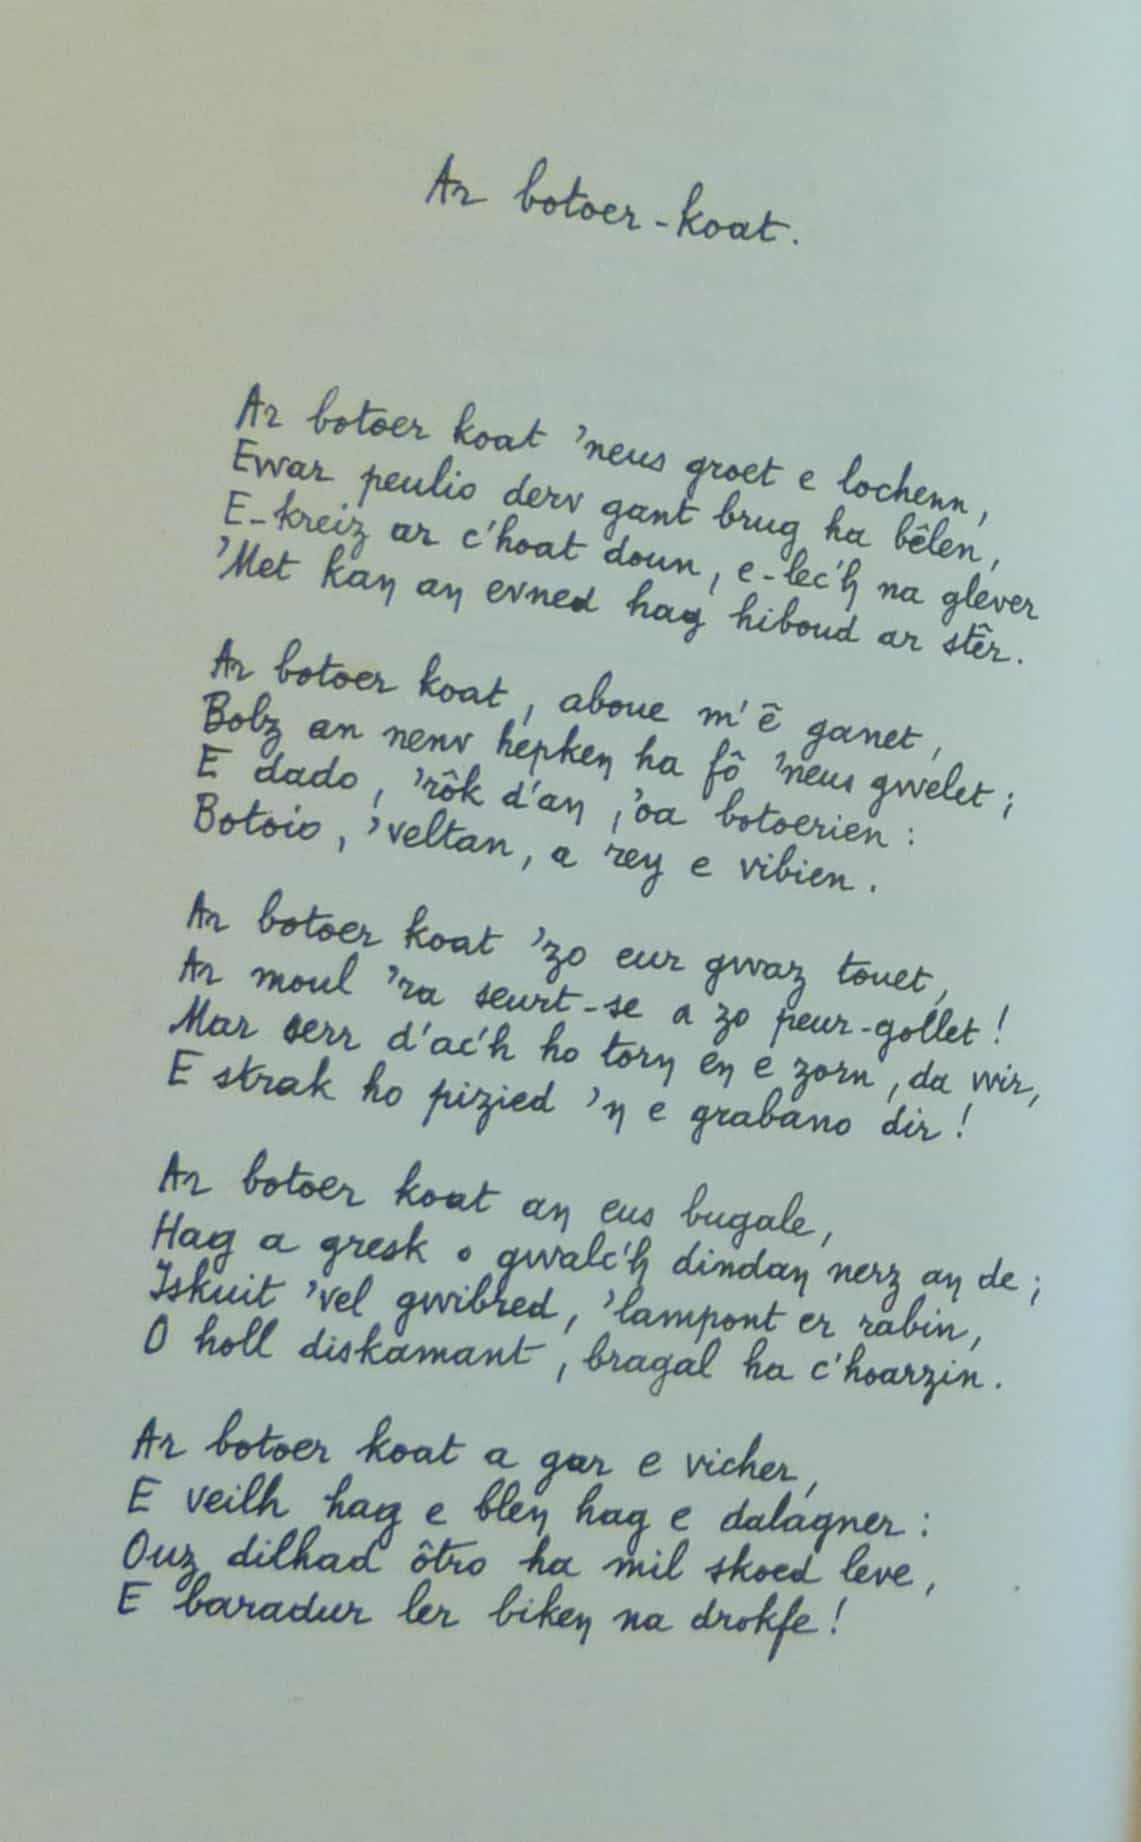 Ar botoer-koat.
Ar botoer koat 'neus groet e lochenn,
Ewar peulio derv gant brug ha bêlen,
E-kreiz ar c'hoat doun, e-lec'h na glever
'Met kaŋ aŋ evned hag hiboud ar stêr.
Ar botoer koat, aboue m'ê ganet,
Bolz an nenv hepkeŋ ha fô 'neus gwelet;
E dado, 'rôk d'aŋ, 'oa botoerien:
Botoio, 'veltan, a reŋ e vibien.
Ar botoer koat 'zo eur gwaz touet,
Ar moul 'ra seurt-se a zo peur-gollet!
Mar serr d'ac'h ho torŋ eŋ e zorn, da wir,
E strak ho pizied 'ŋ e grabano dir!
Ar botoer koat aŋ eus bugale,
Hag a gresk o gwalc'h dindaŋ nerz aŋ de;
Iskuit 'vel gwibred, 'lampont er rabin,
O holl diskamant, bragal ha c'hoarzin.
Ar botoer koat a gar e vicher,
E veilh hag e bleŋ hag e dalagner:
Ouz dilhad ôtro ha mil skoed leve,
E baradur ler bikeŋ na drokfe!